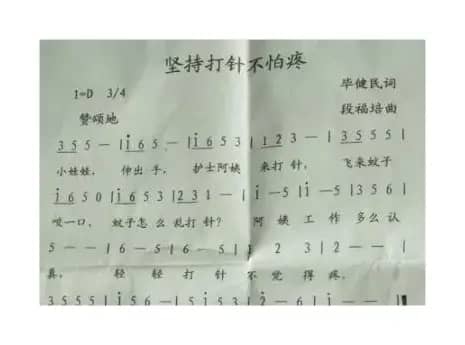 坚持打针不怕疼
1=D 3/4 毕健民词
赞颂地 段福培曲
3 5 5 — | i 6 5 — | i 6 5 3 | 1 2 3 — | 3 5 5 5 |
小娃娃， 伸出手， 护士阿姨 来打针， 飞来蚊子
i 6 5 0 | i 6 5 3 | 2 3 1 — | i — 5 | i — 5 | 3 5 6 1
咬一口， 蚊子怎么乱打针？ 阿姨工作多么认
5 — — | 6 — 5 | 6 — 5 | 1 2 3 | 2 — — |
真， 轻轻打针不觉得疼，
3 5 5 5 | i 6 — | 5 i 5 3 | 2 — 6 | 1 — —